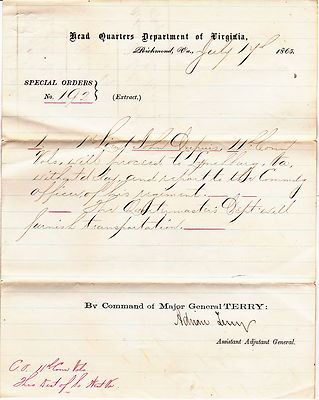 Head Quarters Department of Virginia,
Richmond, Va., July 17th 1865.
SPECIAL ORDERS
No. 192 (Extract.)
1 1st Lieut John 11th Conn
Vols, will proceed to Lynchburg, Va.
without delay, and report to the Comdg
officer of his regiment
The Quartermasters Dept will
furnish transportation.
By Command of Major General TERRY:
Adrian Terry
Assistant Adjutant General.
C.O. 11th Conn Vols
Thro